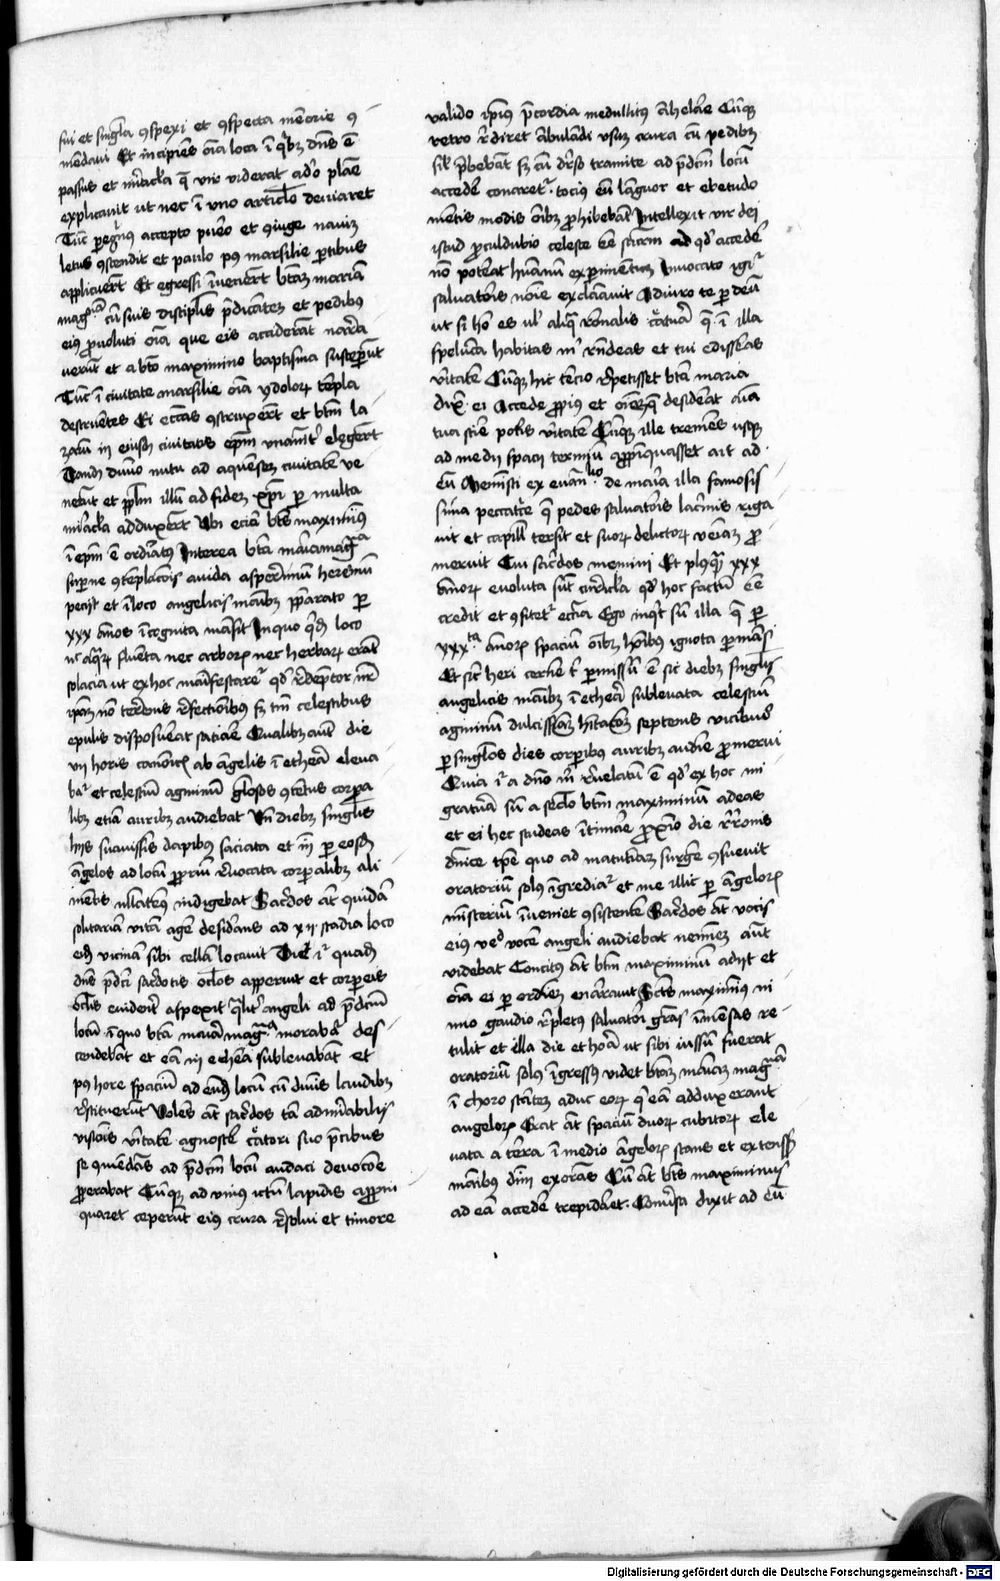 fui et singl̄a ꝯspexi et ꝯspecta mēorie ꝯ
mēdaui Et incipiēs oīa loca ī qͥbꝫ dn̄s ē
passus et mͥracl̄a q̄ viderat adeo plāe
explicauit ut nec ī vno articl̄o deuiaret
Tūc pegͥnus accepto pueo et ꝯiuge nauim
letus ꝯscendit et paulo pꝰ marsilie ꝑtibus
applicuerūt Et egressi īuenerūt btām mariā
magᵃ cū suis discipl̄is p̄dicātem et pedibus
eiꝰ ꝓuoluti oīa que eis acciderāt narra
uerūt et a btō maximino baptisma susceperūt
Tūc ī ciuitate marsilie oīa ydoloꝝ tēpla
destruentes Et eccͣs ꝯstruxerūt et btm̄ la
zarū in eiusdē ciuitatis ep̄m vnanimiter elegerūt
Tandē diuīo nutu ad aquensem ciuitatē ve
nerūt et ppl̄m illū ad fidem xp̄i ꝑ multa
mͥracl̄a adduxerūt Vbi eciā bt̄s maximinꝰ
ī ep̄m ē ordinatꝰ Interea btā maria magᵃ
supne ꝯtēplacōis auida asperrimū heremū
pecijt et ī loco angelicis manibꝫ p̄parato ꝑ
xxx ānos īcognita mansit In quo qͥdē loco
nͨ aquaꝝ fluenta nec arboꝝ nec herbaꝝ erāt
solacia ut ex hoc manifestaretur qd̓ rēdemptor nr̄
ip̄am nō terrenis refectionibus sꝫ tm̄ celestibus
epulis disposuerat saciare Qualibꝫ aut̄ die
vij horis canonicis ab āgelis ī etherā eleua
batur et celestiū agminū gl̄osos ꝯcētus corpa
libꝫ etiā auribꝫ audiebat Vn̄ diebꝫ singulis
hijs suauissimis dapibus saciata et in̄ ꝑ eosdē
āgelos ad locū ꝓpriū reuocata corꝑalibꝫ ali
mētis nullatenus indigebat Sac̄dos āt quidā
solitariā vitā agē desiderans ad xij stadia loco
eidē vicinā sibi cellā locauit Die igͥ quadā
dn̄s p̄dci sac̄dotis oclōs apperuit et corꝑeis
oclīs euidenter aspexit qualiter angeli ad p̄dcm̄
locū ī quo btā maria magᵃ morabatur des
cendebāt et eā in etherā subleuabāt et
pꝰ hore spaciū ad eundē locū cū diuīs laudibꝫ
restituerūt Volēs āt sac̄dos tā admirabilis
visiois vͥtatē agnoscē c̄atori suo p̄cibus
se ꝯmēdās ad p̄dcm̄ locū audaci deuocōe
ꝓperabat Cūqꝫ ad vnius ictū lapidis appin
quaret ceperūt eius crura resolui et timore
valido ip̄ius p̄cordia medullitus āhelare Cūqꝫ
retro rediret ābulandi vsum crura cū pedibꝫ
sil̄ p̄bebāt sꝫ cū diuerso tramite ad p̄dcm̄ locū
accedē conaretur tocius eū lāguor et ebetudo
mētis modis oībꝫ ꝓhibebāt Intellexit vir dei
istud ꝓculdubio celeste eē sacrm̄ ad qd̓ accedē
nō poterat humanū experimentum Inuocato igͥ
saluatoris noīe exclāauit Adiuro te ꝑ deū
ut si ho es ul̓ aliqua ronalis c̄atura q̄ ī illa
spelūca habitas mͥ rn̄deas et tui edisseras
vͥtatē Cūqꝫ hͨ tercio repetisset btā maria
dix̄ ei Accede ꝓpius et oīm qͣ desiderat aīa
tua scire poteris vͥtatē Cūqꝫ ille tremēs usqꝫ
ad medij spacij terminū appropinquasset ait ad
eū Meministi ex euangͥo de maria illa famosis
sima peccatrice q̄ pedes saluatoris lacrimis riga
uit et capillis tersit et suoꝝ delictoꝝ veniam ꝓ
meruit Cui sac̄dos memini Et plusqͣ xxx
ānoꝝ euoluta sūt curricla qd̓ hoc factū eē
credit et ꝯfitetur eccͣ Ego inquit sū illa q̄ ꝑ
xxxᵗᵃ ānoꝝ spaciū oībꝫ hoībus ignota ꝑmansi
Et sicut heri cernē t̓ ꝑmissū ē sic diebꝫ singulis
angelicis manibꝫ ī etherā subleuata celestiū
agminū dulcissimā septenis vicibus
ꝑ singulos dies corꝑibus auribꝫ audire ꝓmerui
Quia igͥ a dn̄o mͥ reuelatū ē qd̓ ex hoc mi
gratura sū a seclo btm̄ maximinū adeas
et ei hec studeas ītimare ꝓximo die
dn̄ice tpe quo ad matutinas surgē ꝯsueuit
oratoriū solus īgrediatur et me illic ꝑ āgeloꝝ
misteriū īueniet ꝯsistentē Sac̄dos āt vocis
eius vͦ vocē angeli audiebat neminem aūt
videbat Concitus āt btm̄ maximinū adijt et
oīa ei ꝑ ordinem enarrauit Sctūs maximinꝰ ni
mio gaudio repletus saluatori grās īmensas re
tulit et illa die et hora ut sibi iussū fuerat
oratoriū solus īgressus videt btām mariam magᵃᵐ
ī choro stātem adhuc eoꝝ q̄ eā adduxerant
angeloꝝ Erat āt spaciū duoꝝ cubitoꝝ ele
uata a terra ī medio āgeloꝝ stans et extensis
manibus dn̄m exorās Cū āt bt̄s maximinus
ad eā accedē trepidaret. Conuersa dixit ad eū
Digitalisierung gefördert durch die Deutsche Forschungsgemeinschaft - DFG